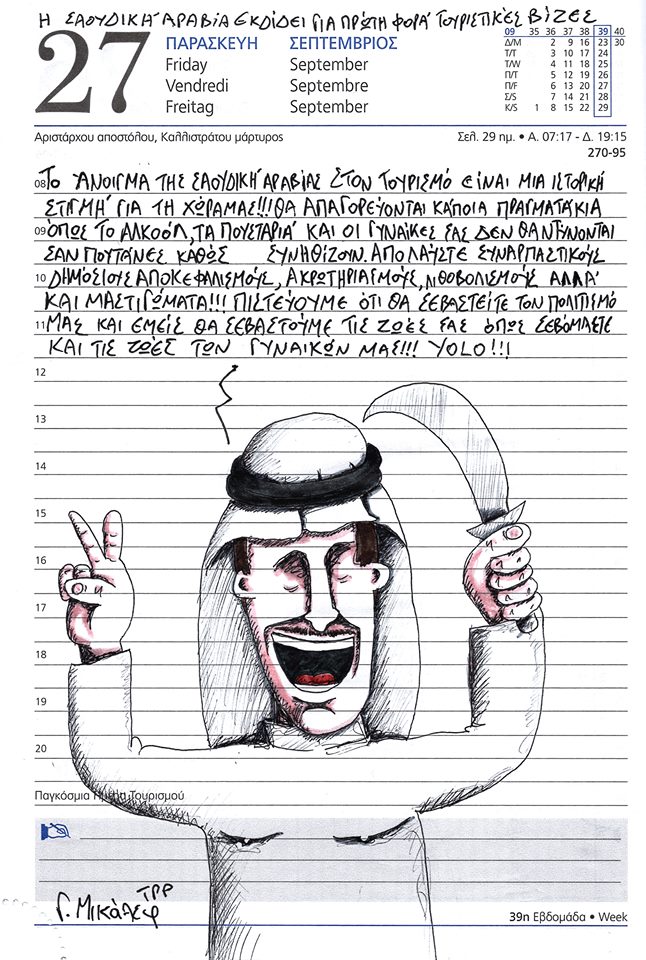 Η ΣΑΟΥΔΙΚΗ ΑΡΑΒΙΑ ΕΚΔΙΔΕΙ ΓΙΑ ΠΡΩΤΗ ΦΟΡΑ ΤΟΥΡΙΣΤΙΚΕΣ ΒΙΖΕΣ
27
ΠΑΡΑΣΚΕΥΗ ΣΕΠΤΕΜΒΡΙΟΣ
Friday September
Vendredi Septembre
Freitag September
09 35 36 37 38 39 40
Δ/M 2 9 16 23 30
T/T 3 10 17 24
T/W 4 11 18 25
Π/T 5 12 19 26
Π/F 6 13 20 27
Σ/S 7 14 21 28
K/S 1 8 15 22 29
Αριστάρχου αποστόλου, Καλλιστράτου μάρτυρος
Σελ. 29 ημ. • Α. 07:17 - Δ. 19:15
270-95
08 ΤΟ ΑΝΟΙΓΜΑ ΤΗΣ ΣΑΟΥΔΙΚΗ ΑΡΑΒΙΑΣ ΣΤΟΝ ΤΟΥΡΙΣΜΟ ΕΙΝΑΙ ΜΙΑ ΙΣΤΟΡΙΚΗ
ΣΤΙΓΜΗ ΓΙΑ ΤΗ ΧΩΡΑ ΜΑΣ!!! ΘΑ ΑΠΑΓΟΡΕΥΟΝΤΑΙ ΚΑΠΟΙΑ ΠΡΑΓΜΑΤΑΚΙΑ
09 ΟΠΩΣ ΤΟ ΑΛΚΟΟΛ, ΤΑ ΠΟΥΣΤΑΡΙΑ ΚΑΙ ΟΙ ΓΥΝΑΙΚΕΣ ΣΑΣ ΔΕΝ ΘΑ ΝΤΥΝΟΝΤΑΙ
ΣΑΝ ΠΟΥΤΑΝΕΣ ΚΑΘΩΣ ΣΥΝΗΘΙΖΟΥΝ. ΑΠΟΛΑΥΣΤΕ ΣΥΝΑΡΠΑΣΤΙΚΟΥΣ
10 ΔΗΜΟΣΙΟΥΣ ΑΠΟΚΕΦΑΛΙΣΜΟΥΣ, ΑΚΡΩΤΗΡΙΑΣΜΟΥΣ, ΛΙΘΟΒΟΛΙΣΜΟΥΣ ΑΛΛΑ
ΚΑΙ ΜΑΣΤΙΓΩΜΑΤΑ!!! ΠΙΣΤΕΥΟΥΜΕ ΟΤΙ ΘΑ ΣΕΒΑΣΤΕΙΤΕ ΤΟΝ ΠΟΛΙΤΙΣΜΟ
11 ΜΑΣ ΚΑΙ ΕΜΕΙΣ ΘΑ ΣΕΒΑΣΤΟΥΜΕ ΤΙΣ ΖΩΕΣ ΣΑΣ ΟΠΩΣ ΣΕΒΟΜΑΣΤΕ
ΚΑΙ ΤΙΣ ΖΩΕΣ ΤΩΝ ΓΥΝΑΙΚΩΝ ΜΑΣ!!! YOLO!!!
12
13
14
15
16
17
18
19
20
Παγκόσμια Ημέρα Τουρισμού
ΤΡΡ
Γ. Μικάλεφ
39η Εβδομάδα • Week